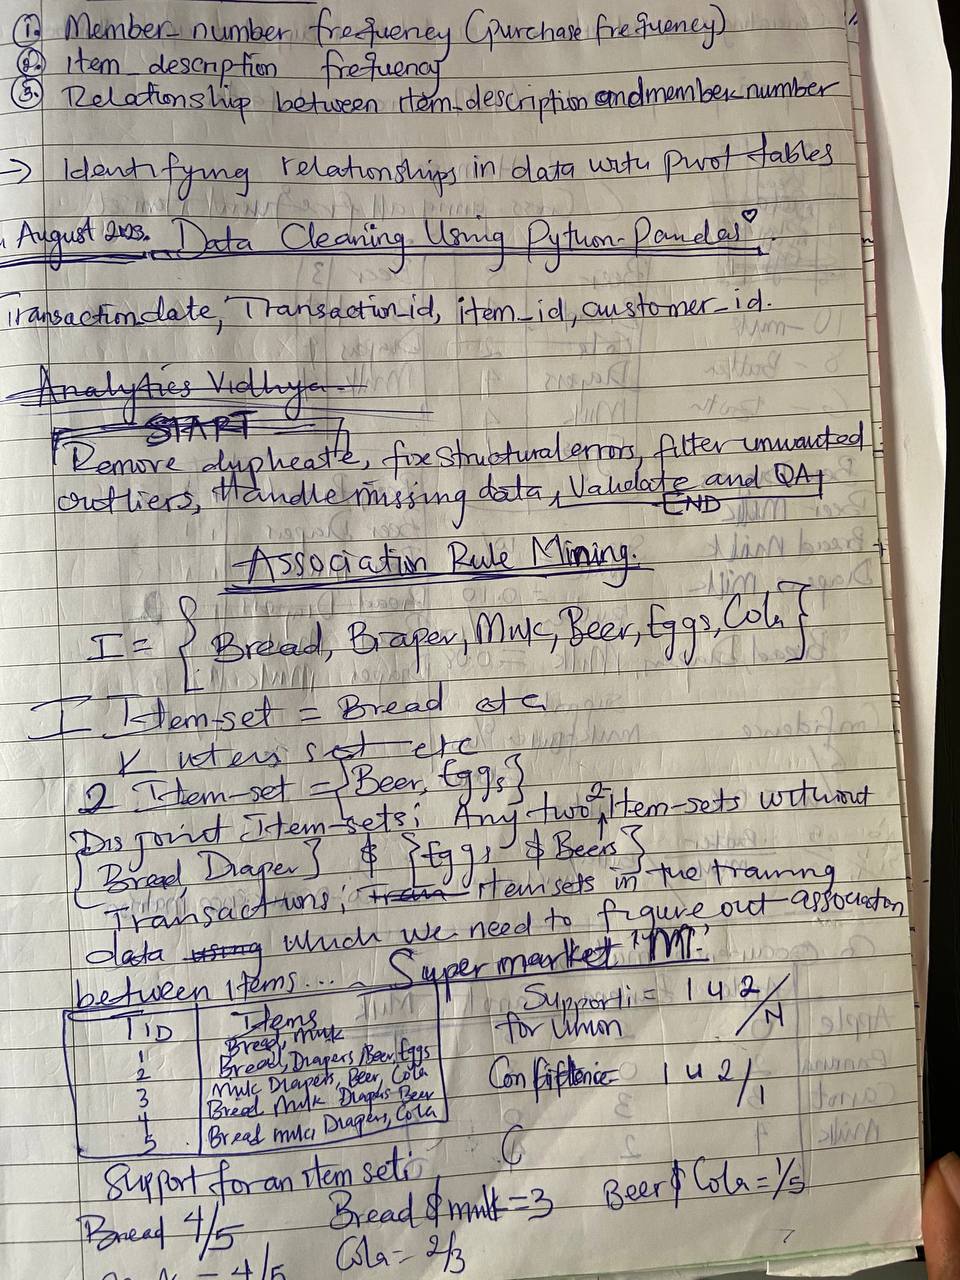 1. Member_number frequency (purchase frequency)
2. item_description frequency
3. Relationship between item_description and member_number
→ Identifying relationships in data with pivot tables
August 2023. Data Cleaning Using Python-Pandas ♡
Transaction_date, Transaction_id, item_id, customer_id.
Analytics Vidhya
START
Remove duplicate, fix structural errors, filter unwanted
outliers, Handle missing data, Validate and QA
END
Association Rule Mining.
I = { Bread, Diaper, Milk, Beer, Eggs, Cola }
I Item-set = Bread etc
K item set etc
2 Item-set = {Beer, Eggs}
Disjoint Item-sets; Any two 2 item-sets without
{Bread, Diaper} & {Eggs & Beers}
Transactions; item sets in the training
data using which we need to figure out association
between items.... Supermarket
TID Items
1 Bread, Milk
2 Bread, Diapers, Beer, Eggs
3 Milk Diapers, Beer, Cola
4 Bread Milk Diapers Beer
5 Bread milk Diapers, Cola
Support = 1 u 2/N
for Union
Confidence 1 u 2/1
C
Support for an item set:
Bread 4/5 Bread & milk = 3 Beer & Cola = 1/5
Cola = 2/3
= 4/5